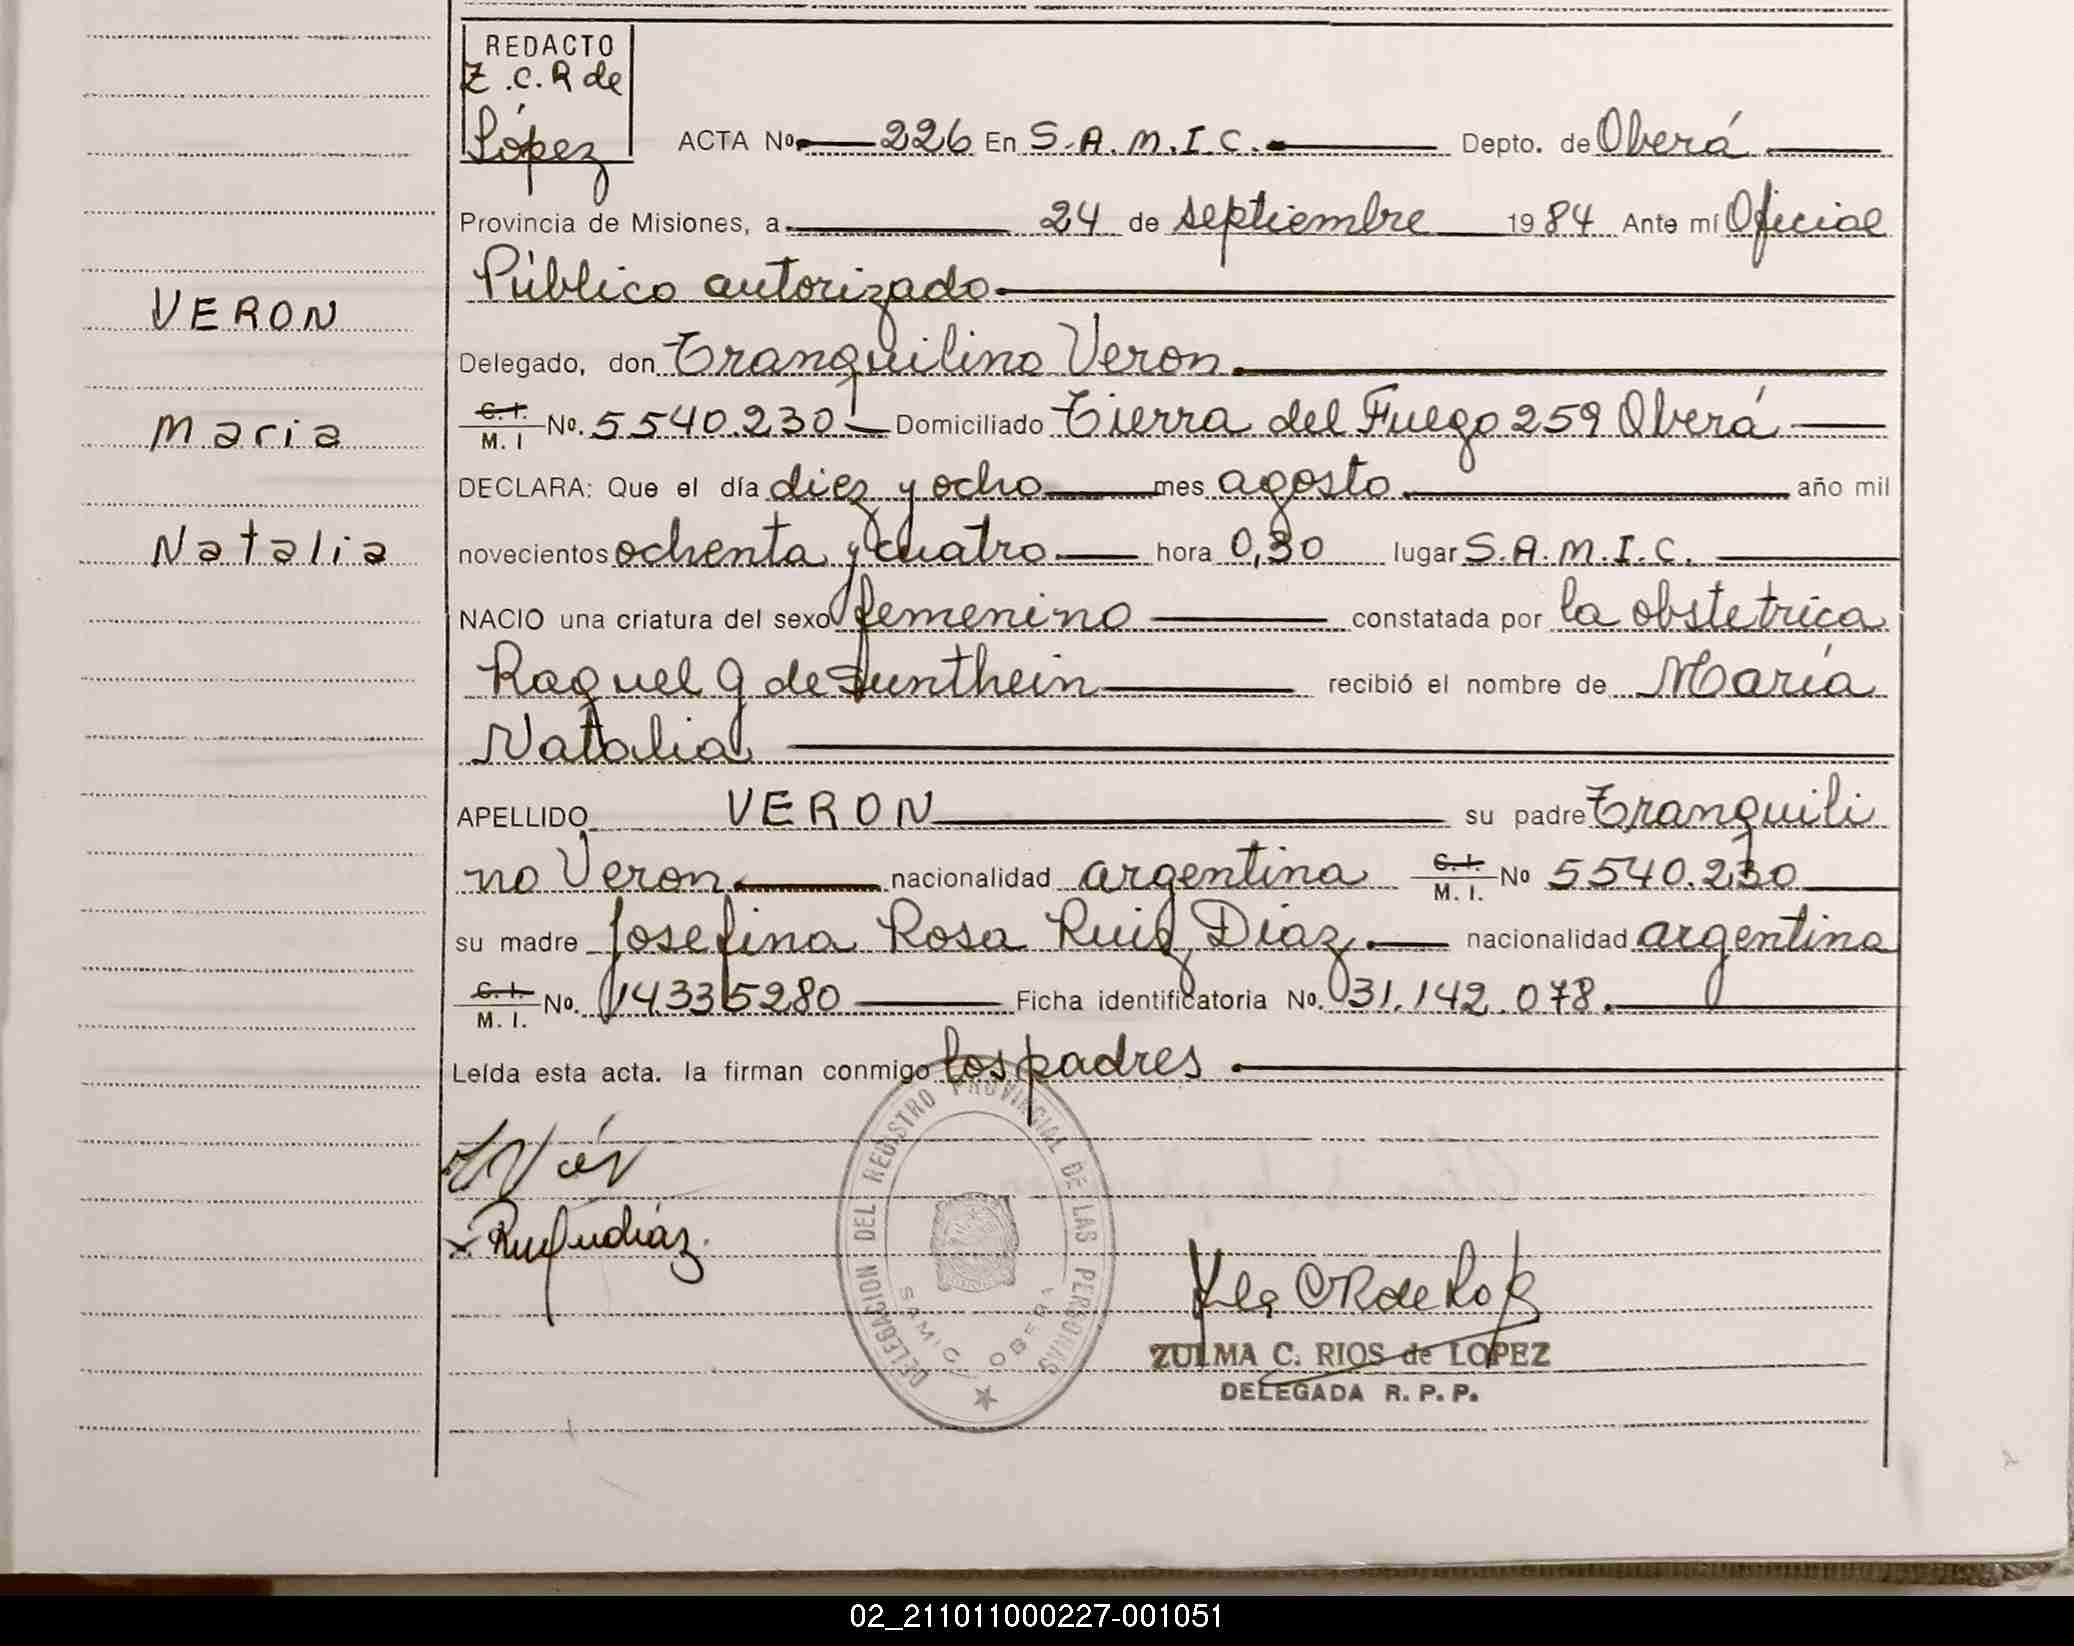 REDACTO
Z.C.R de
López
ACTA Nº 226 En S.A.M.I.C. Depto. de Oberá
Provincia de Misiones, a 24 de septiembre 1984 Ante mí Oficial
Público autorizado
VERON
Delegado, don Tranquilino Veron
C.I. M.I Nº. 5540.230 Domiciliado Tierra del Fuego 259 Oberá
Maria
DECLARA: Que el día diez y ocho mes agosto año mil
novecientos ochenta y cuatro hora 0,30 lugar S.A.M.I.C.
Natalia
NACIO una criatura del sexo femenino constatada por la obstetrica
Raquel G de Junthein recibió el nombre de María
Natalia
APELLIDO VERON su padre Tranquili
no Veron nacionalidad argentina C.I. M.I. Nº 5540.230
su madre Josefina Rosa Ruiz Diaz nacionalidad argentina
C.I. M.I. Nº. 14335280 Ficha identificatoria No. 31.142.078.
Leída esta acta. la firman conmigo los padres
DELEGACION DEL REGISTRO PROVINCIAL DE LAS PERSONAS
SAMIC OBERA
ZULMA C. RIOS de LOPEZ
DELEGADA R. P. P.
02_211011000227-001051